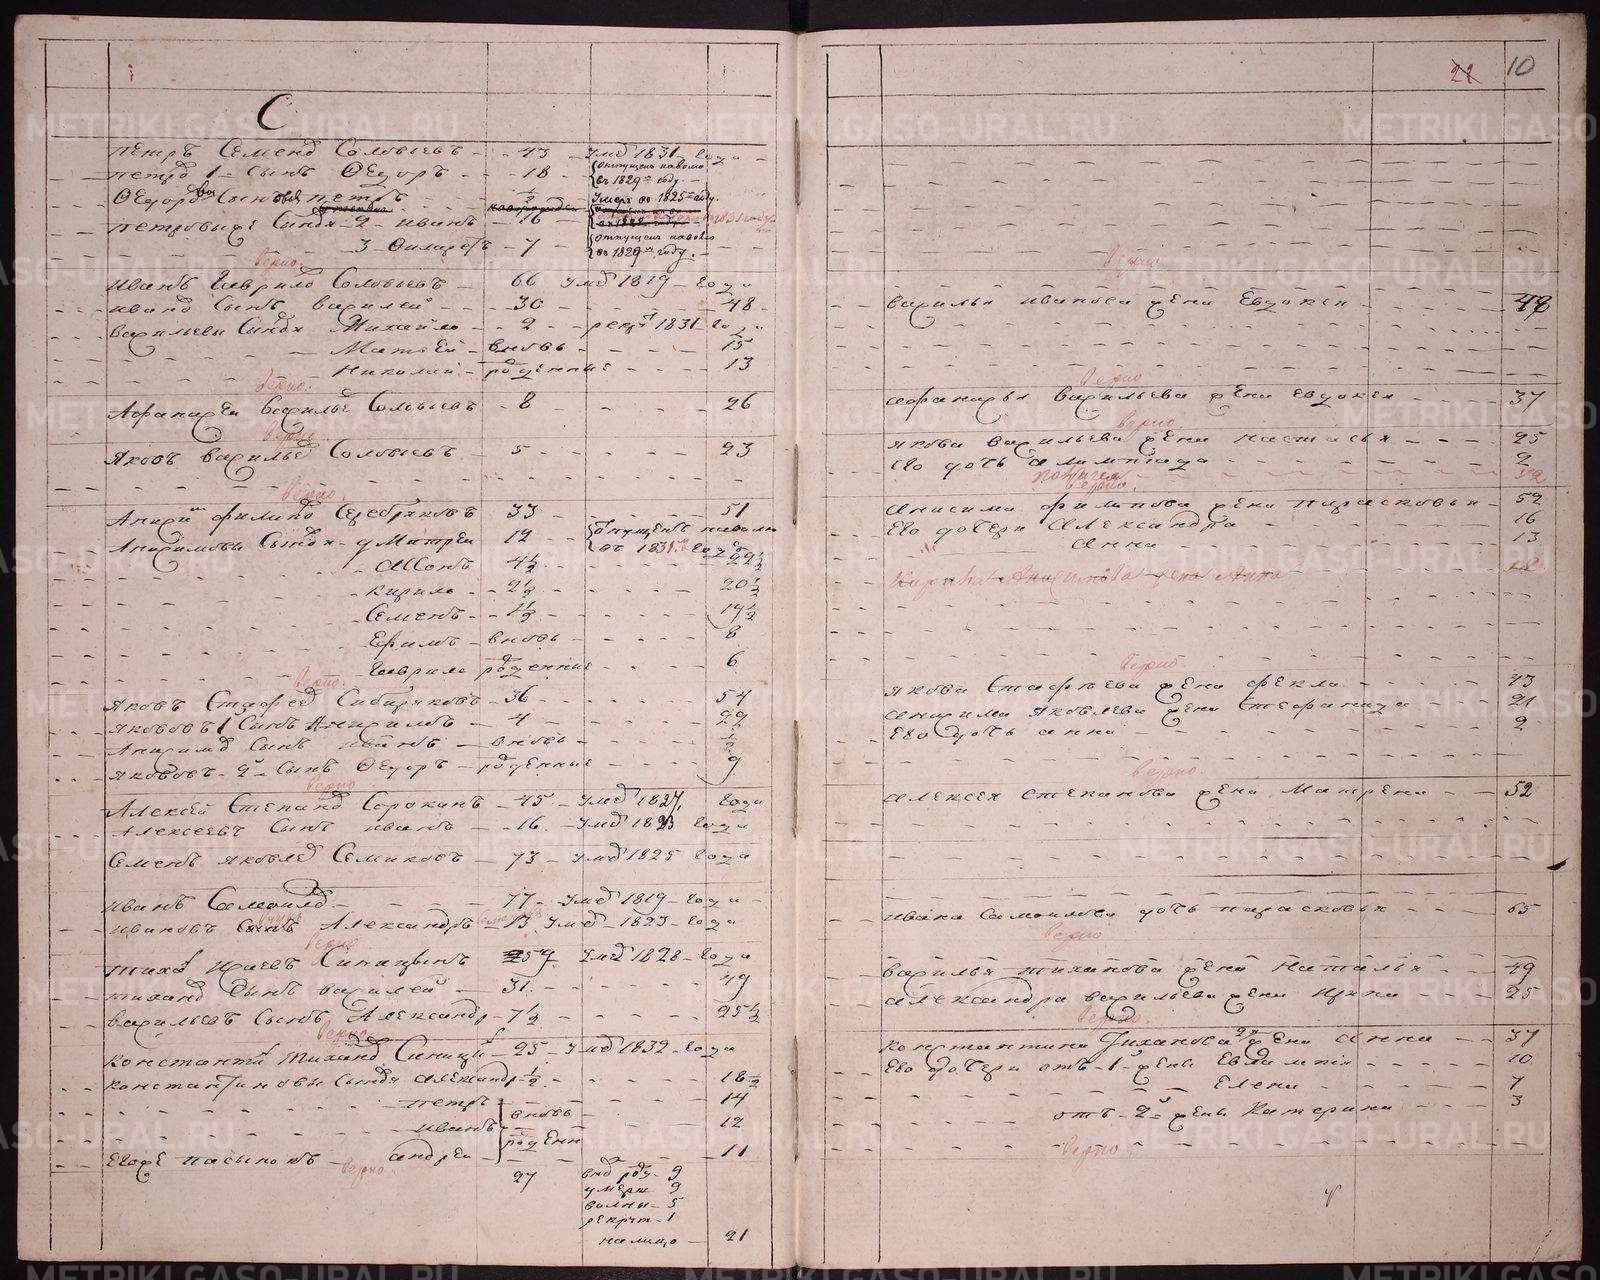 С
Петръ Семенов Соловьевъ 43 умер 1831 года
Петров 1 сынъ Ѳедоръ 18 отпущен на волю
въ 1829 году
Ѳедоровы сыновья Петръ ½ умеръ въ 1825 году
Петровы же сыновья 2 Иванъ 16
3 7 отпущен на волю
въ 1829 году
Верно.
Иванъ Гаврилов Соловьевъ 66 умер 1819 года
Иванов сынъ Василей 30 48
Васильевы сыновья Михайло 2 рекрут 1831 года
Матвей вновь 15
Николай рожденные 13
Верно.
Афанасей Васильев Соловьевъ 8 26
Верно.
Яковъ Васильев Соловьевъ 5 23
Верно.
Анисим Филипов Серебряковъ 33 51
Анисимовы сыновья Дмитрей 12 отпущенъ на волю
въ 1831 году
4½ 22½
Кирило 2½ 20½
Семенъ 1½ 19½
Ефимъ вновь 8
Гаврило рожденные 6
Верно.
Яковъ Стафеев Сибиряковъ 36 54
Яковов 1 сынъ Анисимъ 4 22
Анисимов сынъ Иванъ вновь ½
Яковов 2 сынъ Ѳедоръ рожденные 9
Верно
Алексей Степанов Сорокинъ 45 умер 1827 года
Алексеевъ сынъ Иванъ 16 умер 1823 года
Семенъ Яковлев Семиковъ 73 умер 1825 года
Иванъ Самойлов 77 умер 1819 года
Ивановъ внукъ Александръ 13 умер 1823 года
Верно
Тихон Исаевъ Синицынъ 59 умер 1828 года
Тиханов сынъ Василей 31 49
Васильевъ сынъ Александр 7½ 25½
Верно.
Константин Тиханов Синицын 25 умер 1832 года
Константиновы сыновья Александр ½ 18½
Петръ вновь 14
Иванъ рожденн 12
Егоже пасынокъ Андрей 11
Верно.
27 внов рож 9
умерш 9
волны 5
рекрут 1
налицо 21
21 10
Верно
Василья Иванова жена Евдокея 49
Верно
Афанасья Васильева жена Евдокея 37
Верно.
Якова Васильева жена Настасья 25
Его дочь Алимпиада 2
Верно.
Анисима Филипова жена Парасковья 52
Его дочери Александра 16
Анна 13
Кирила Анисимова жена Анна
Верно.
Якова Стафеева жена Фекла 43
Анисима Яковлева жена Стефанида 21
Его дочь Анна 2
Верно.
Алексея Степанова жена Матрена 52
Ивана Самойлова дочь Парасковья 65
Верно
Василья Тиханова жена Наталья 49
Александра Васильева жена Ирина 25
Верно.
Константина Тиханова 2я жена Анна 37
Его дочери отъ 1й жены Евлампия 10
Елена 7
отъ 2й жены Катерина 3
Верно
METRIKI.GASO-URAL.RU